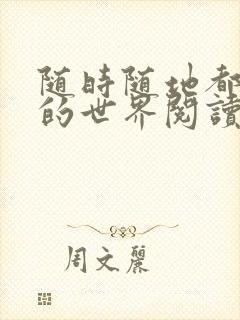 随時随地都
的世界閱讀
周文麗